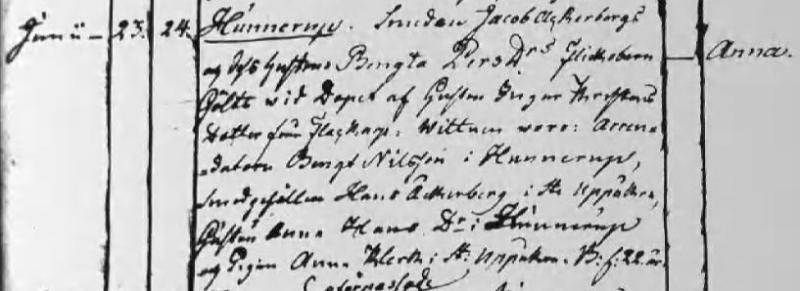 Junii – 23. 24. Hunnerup. Smeden Jacob Åckerbergs
og dess hustrus Bengta Pers Drs flickebarn Anna.
hölts wid Dopet af hustru Inger Christens
Dotter från Flackarp. Wittnen woro: Arren-
datorn Bengt Nilsson i Hunnerup,
Smedgesällen Hans Åckerberg i St. Uppåkra,
hustru Anna Hans Dr i Hunnerup
og Pigan Anna Klerk i St. Uppåkra. B: f: 22 år.